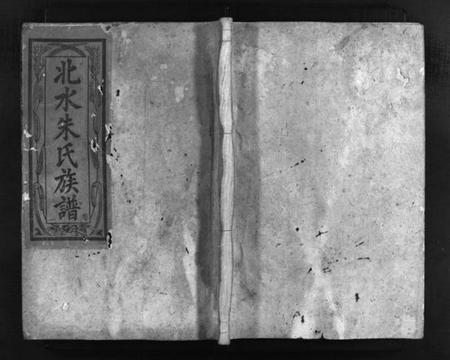 北水朱氏族譜